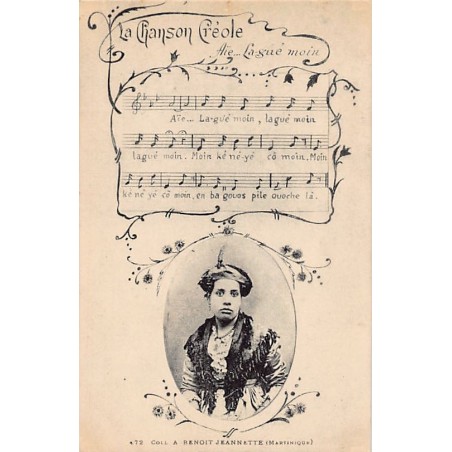 La Chanson Créole
Aïe... Lagué moin
Aïe... La-gué moin, lagué moin
lagué moin. Moin ké né-yé cô moin. Moin
ké né yé cô moin, en ba gouos pile ouoche là.
472 COLL. A. BENOIT JEANNETTE (MARTINIQUE)